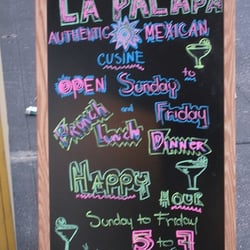 LA PALAPA
AUTHENTIC MEXICAN
CUSINE
OPEN Sunday to
Brunch and Friday
Lunch Dinner
Happy
HOUR
Sunday to Friday
5 to 7